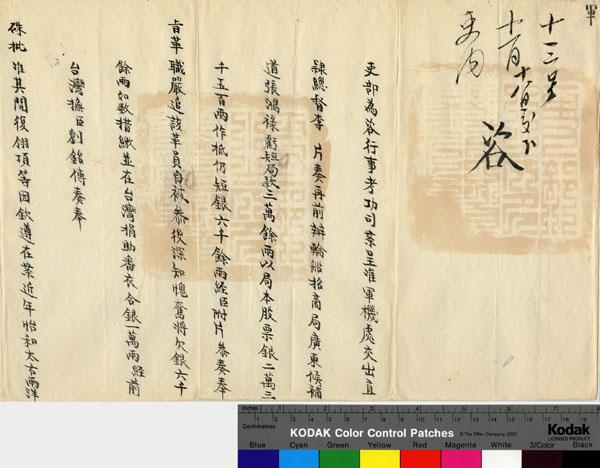 軍
十二号
十一月十八日交下
吏內
咨
吏部為咨行事考功司案呈准軍機處交出直
隸總督李 片奏再前辦輪船招商局廣東候補
道張鴻祿虧短局款二萬餘兩以局本股票銀二萬二
千五百兩作抵仍短銀六千餘兩經臣附片叅奏奉
旨革職嚴追該革員自被叅後深知愧奮將欠銀六千
餘兩如數措繳並在台灣捐助番衣合銀一萬兩經前
台灣撫臣劉銘傳奏奉
硃批准其開復翎頂等因欽遵在案近年怡和太古兩洋
Inches
Centimetres
KODAK Color Control Patches
© The Tiffen Company, 2000
Kodak
LICENSED PRODUCT
Blue Cyan Green Yellow Red Magenta White 3/Color Black